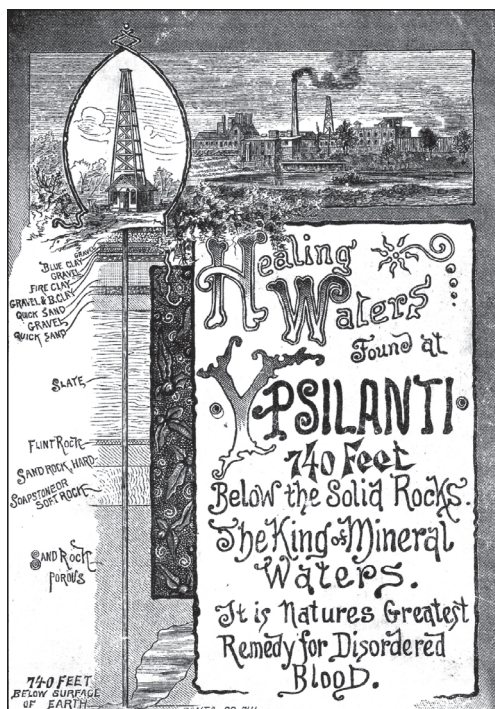 GRAVEL
BLUE CLAY
GRAVEL
FIRE CLAY
GRAVEL & B.CLAY
QUICK SAND
GRAVEL
QUICK SAND
SLATE
FLINT ROCK
SAND ROCK, HARD
SOAPSTONE OR
SOFT ROCK
SAND ROCK
POROUS
740 FEET
BELOW SURFACE
OF EARTH
Healing
Waters
Found at
YPSILANTI
740 Feet
Below the Solid Rocks.
The King of Mineral
Waters.
It is Natures Greatest
Remedy for Disordered
Blood.